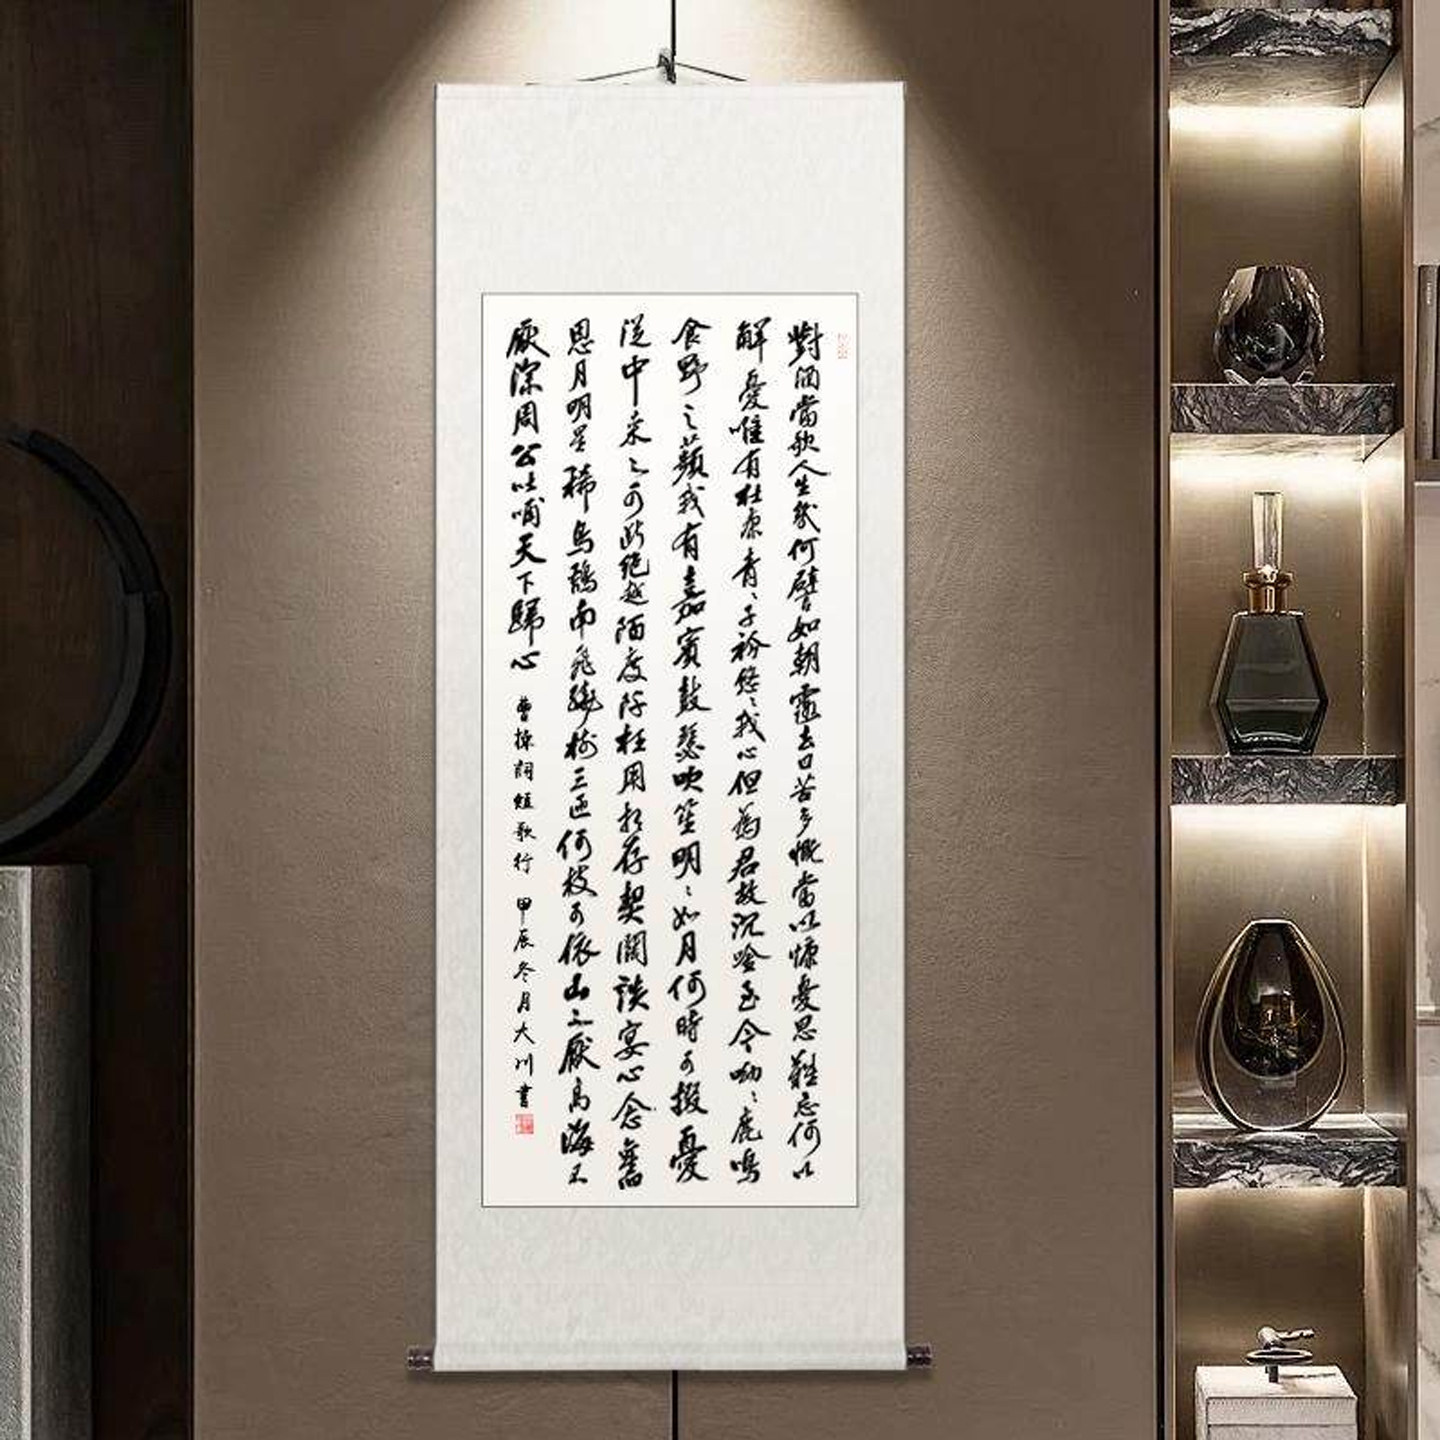 對酒當歌人生幾何譬如朝露去日苦多慨當以慷憂思難忘何以
解憂唯有杜康青〻子衿悠〻我心但為君故沉吟至今呦〻鹿鳴
食野之蘋我有嘉賓鼓瑟吹笙明〻如月何時可掇憂
從中来不可断絕越陌度阡枉用相存契闊談宴心念舊
恩月明星稀烏鵲南飛繞樹三匝何枝可依山不厭高海不
厭深周公吐哺天下歸心 曹操詞短歌行 甲辰冬月大川書